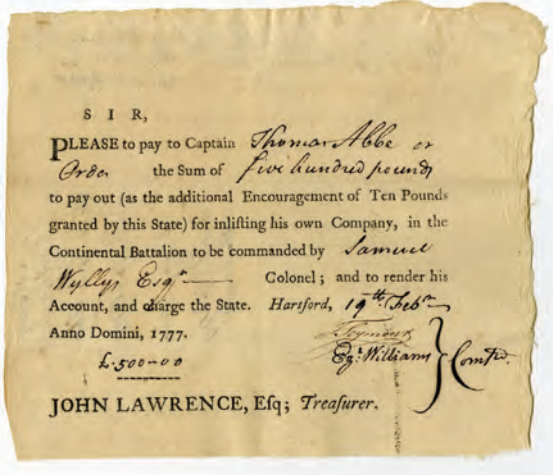 S I R,
PLEASE to pay to Captain Thomas Abbe or
Order the Sum of five hundred pounds
to pay out (as the additional Encouragement of Ten Pounds
granted by this State) for inlisting his own Company, in the
Continental Battalion to be commanded by Samuel
Wyllys Esqr Colonel; and to render his
Account, and charge the State. Hartford, 19th. Febr
Anno Domini, 1777.
T Seymour
£.500-00 Ez. Williams } Comtee.
JOHN LAWRENCE, Esq; Treasurer.